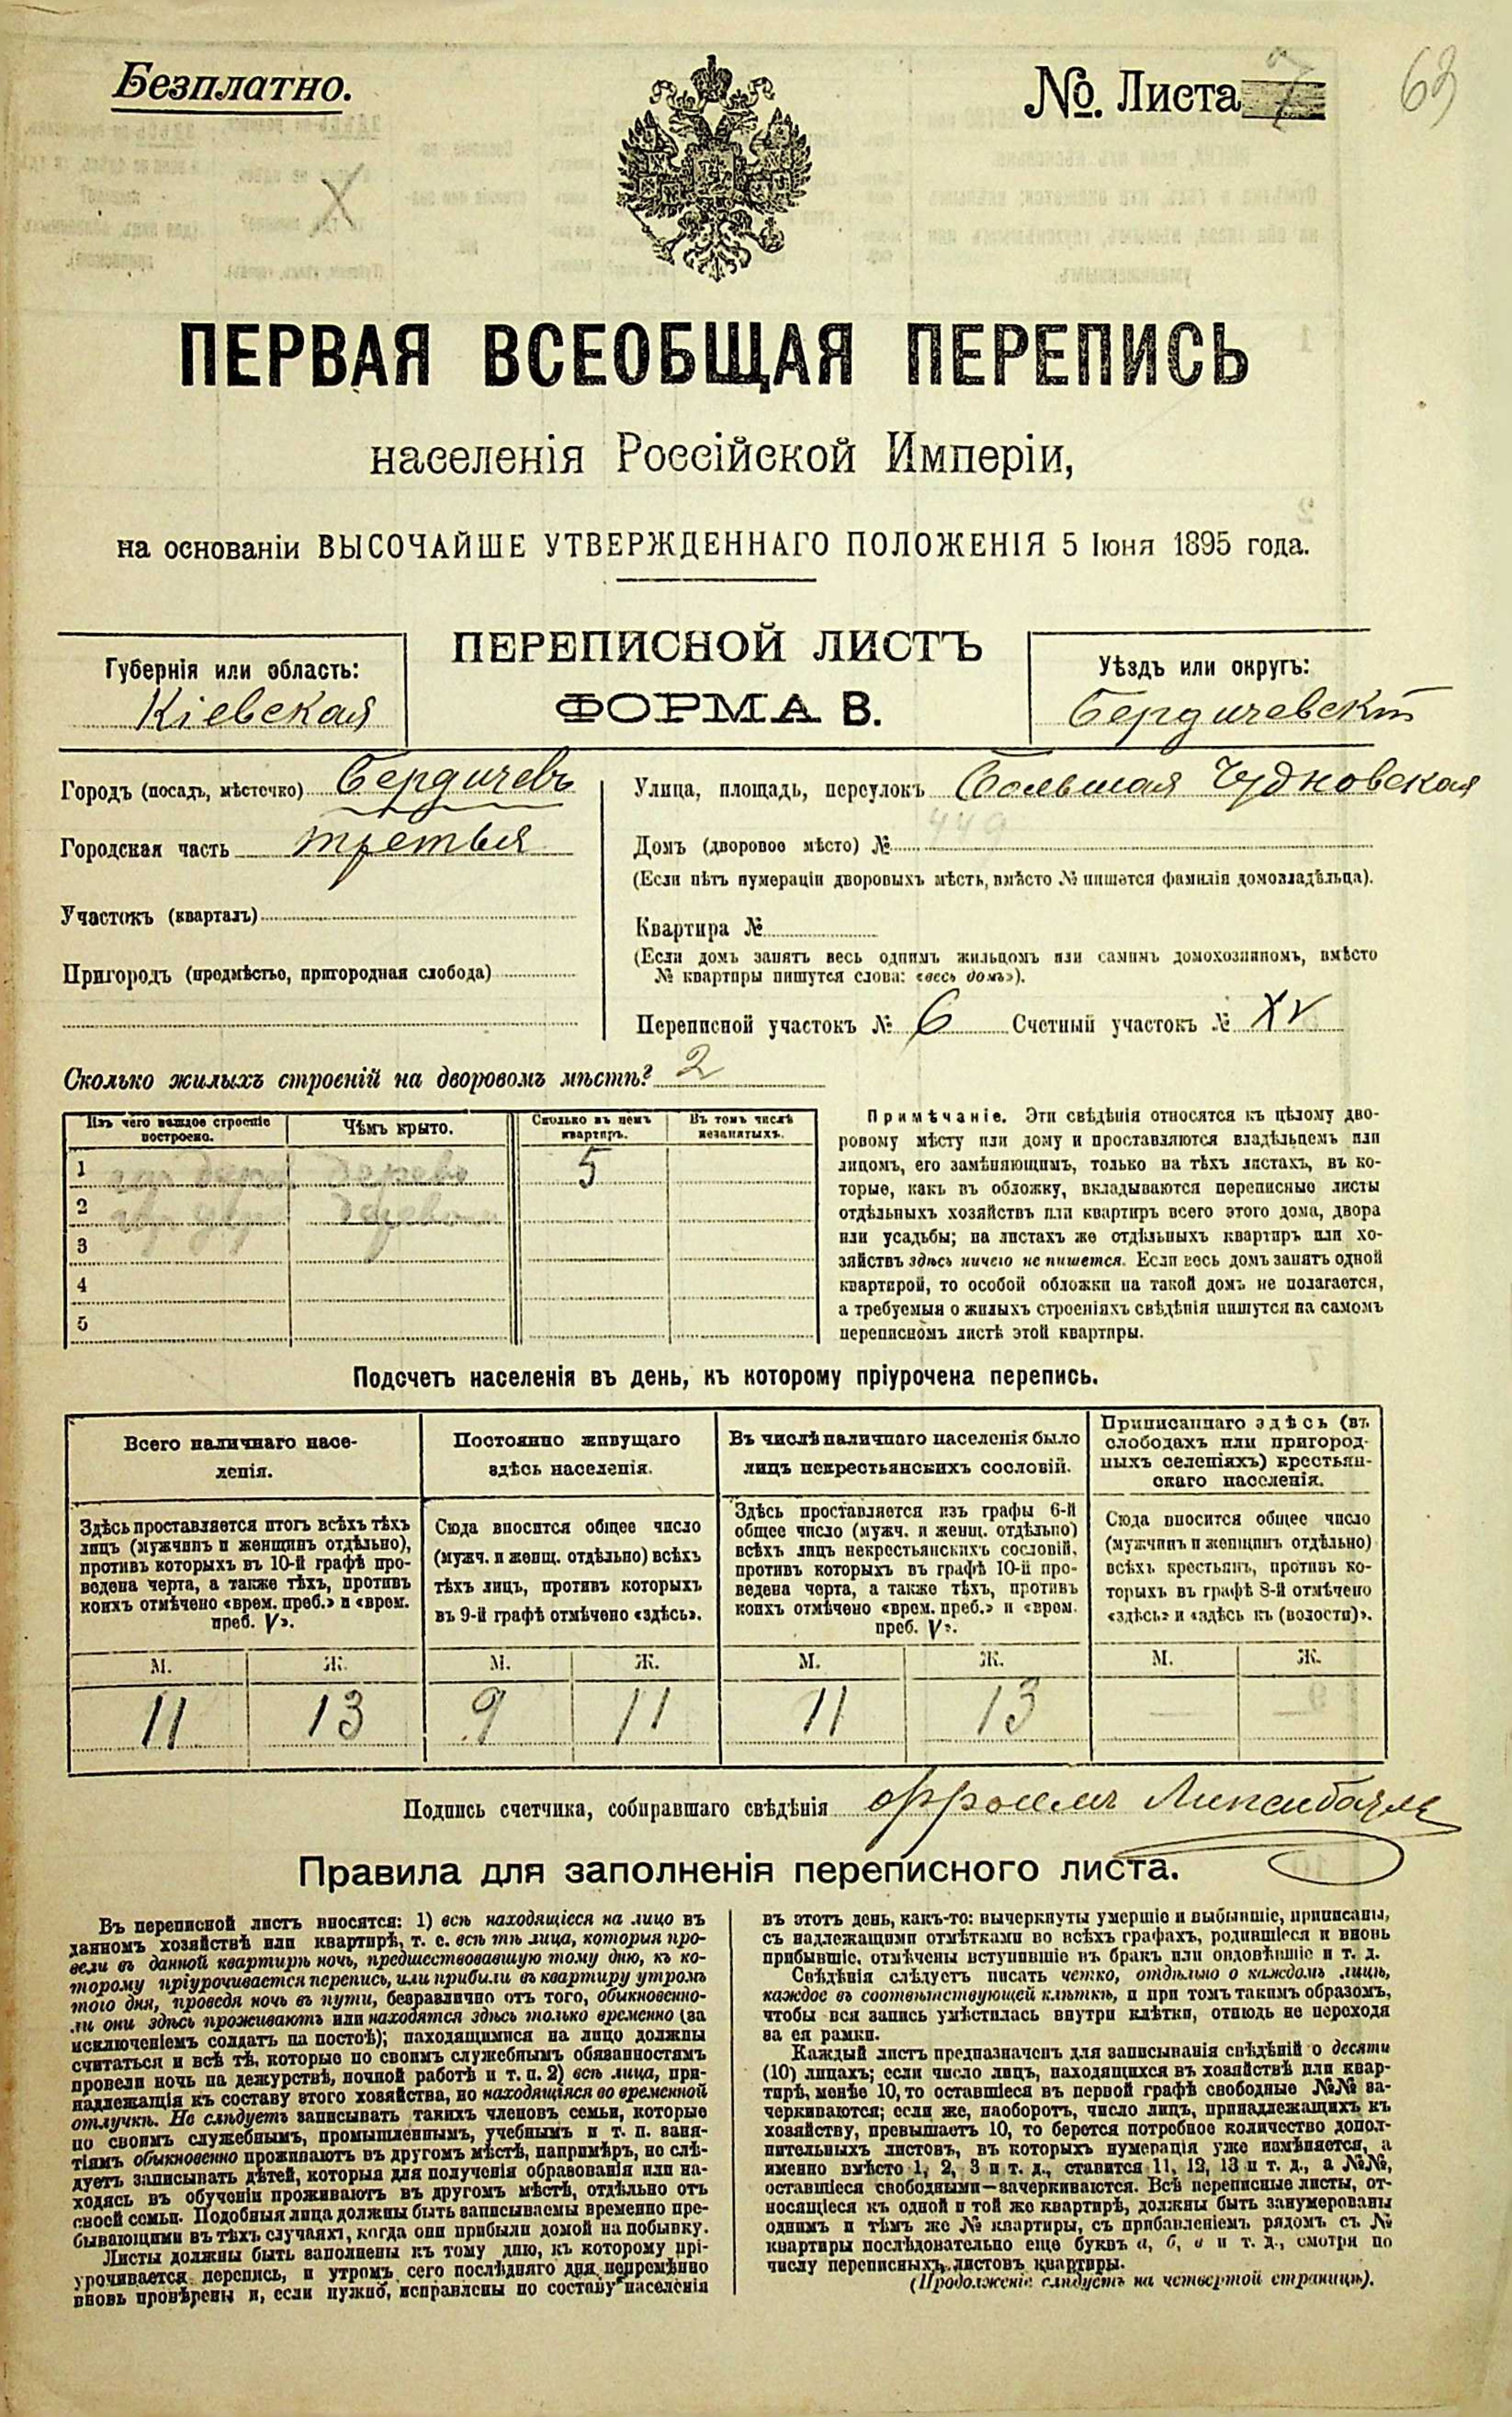 Безплатно.
№. Листа 7
63
ПЕРВАЯ ВСЕОБЩАЯ ПЕРЕПИСЬ
населенія Россійской Имперіи,
на основаніи ВЫСОЧАЙШЕ УТВЕРЖДЕННАГО ПОЛОЖЕНІЯ 5 Іюня 1895 года.
ПЕРЕПИСНОЙ ЛИСТЪ
ФОРМА В.
Губернія или область:
Кіевская
Уѣздъ или округъ:
Бердичевскій
Городъ (посадъ, мѣстечко) Бердичевъ
Городская часть третья
Участокъ (кварталъ)
Пригородъ (предмѣстье, пригородная слобода)
Улица, площадь, переулокъ Большая Чудновская
449
Домъ (дворовое мѣсто) №
(Если нѣтъ нумераціи дворовыхъ мѣстъ, вмѣсто № пишется фамилія домовладѣльца).
Квартира №
(Если домъ занятъ весь однимъ жильцомъ или самимъ домохозяиномъ, вмѣсто
№ квартиры пишутся слова: «весь домъ»).
Переписной участокъ № 6 Счетный участокъ № XV
Сколько жилыхъ строеній на дворовомъ мѣстѣ? 2
Изъ чего каждое строеніе
построено.
Чѣмъ крыто.
Сколько въ немъ
квартиръ.
Въ томъ числѣ
незанятыхъ.
1
5
2
3
4
5
Примѣчаніе. Эти свѣдѣнія относятся къ цѣлому дво-
ровому мѣсту или дому и проставляются владѣльцемъ или
лицомъ, его замѣняющимъ, только на тѣхъ листахъ, въ ко-
торые, какъ въ обложку, вкладываются переписные листы
отдѣльныхъ хозяйствъ или квартиръ всего этого дома, двора
или усадьбы; на листахъ же отдѣльныхъ квартиръ или хо-
зяйствъ здѣсь ничего не пишется. Если весь домъ занятъ одной
квартирой, то особой обложки на такой домъ не полагается,
а требуемыя о жилыхъ строеніяхъ свѣдѣнія пишутся на самомъ
переписномъ листѣ этой квартиры.
Подсчетъ населенія въ день, къ которому пріурочена перепись.
Всего наличнаго насе-
ленія.
Здѣсь проставляется итогъ всѣхъ тѣхъ
лицъ (мужчинъ и женщинъ отдѣльно),
противъ которыхъ въ 10-й графѣ про-
ведена черта, а также тѣхъ, противъ
коихъ отмѣчено «врем. преб.» и «врем.
преб. V».
Постоянно живущаго
здѣсь населенія.
Сюда вносится общее число
(мужч. и женщ. отдѣльно) всѣхъ
тѣхъ лицъ, противъ которыхъ
въ 9-й графѣ отмѣчено «здѣсь».
Въ числѣ наличнаго населенія было
лицъ некрестьянскихъ сословій.
Здѣсь проставляется изъ графы 6-й
общее число (мужч. и женщ. отдѣльно)
всѣхъ лицъ некрестьянскихъ сословій,
противъ которыхъ въ графѣ 10-й про-
ведена черта, а также тѣхъ, противъ
коихъ отмѣчено «врем. преб.» и «врем.
преб. V».
Приписаннаго здѣсь (въ
слободахъ или пригород-
ныхъ селеніяхъ) крестьян-
скаго населенія.
Сюда вносится общее число
(мужчинъ и женщинъ отдѣльно)
всѣхъ крестьянъ, противъ ко-
торыхъ въ графѣ 8-й отмѣчено
«здѣсь» и «здѣсь къ (волости)».
М. Ж. М. Ж. М. Ж. М. Ж.
11 13 9 11 11 13 — —
Подпись счетчика, собиравшаго свѣдѣнія
Правила для заполненія переписного листа.
Въ переписной листъ вносятся: 1) всѣ находящіеся на лицо въ
данномъ хозяйствѣ или квартирѣ, т. е. всѣ тѣ лица, которыя про-
вели въ данной квартирѣ ночь, предшествовавшую тому дню, къ ко-
торому пріурочивается перепись, или прибыли въ квартиру утромъ
того дня, проведя ночь въ пути, безразлично отъ того, обыкновенно-
ли они здѣсь проживаютъ или находятся здѣсь только временно (за
исключеніемъ солдатъ на постоѣ); находящимися на лицо должны
считаться и всѣ тѣ, которые по своимъ служебнымъ обязанностямъ
провели ночь на дежурствѣ, ночной работѣ и т. п. 2) всѣ лица, при-
надлежащія къ составу этого хозяйства, но находящіяся во временной
отлучкѣ. Не слѣдуетъ записывать такихъ членовъ семьи, которые
по своимъ служебнымъ, промышленнымъ, учебнымъ и т. п. заня-
тіямъ обыкновенно проживаютъ въ другомъ мѣстѣ, напримѣръ, не слѣ-
дуетъ записывать дѣтей, которыя для полученія образованія или на-
ходясь въ обученіи проживаютъ въ другомъ мѣстѣ, отдѣльно отъ
своей семьи. Подобныя лица должны быть записываемы временно пре-
бывающими въ тѣхъ случаяхъ, когда они прибыли домой на побывку.
Листы должны быть заполнены къ тому дню, къ которому прі-
урочивается перепись, и утромъ сего послѣдняго дня непремѣнно
вновь провѣрены и, если нужно, исправлены по составу населенія
въ этотъ день, какъ-то: вычеркнуты умершіе и выбывшіе, приписаны,
съ надлежащими отмѣтками во всѣхъ графахъ, родившіеся и вновь
прибывшіе, отмѣчены вступившіе въ бракъ или овдовѣвшіе и т. д.
Свѣдѣнія слѣдуетъ писать четко, отдѣльно о каждомъ лицѣ,
каждое въ соотвѣтствующей клѣткѣ, и при томъ такимъ образомъ,
чтобы вся запись умѣстилась внутри клѣтки, отнюдь не переходя
за ея рамки.
Каждый листъ предназначенъ для записыванія свѣдѣній о десяти
(10) лицахъ; если число лицъ, находящихся въ хозяйствѣ или квар-
тирѣ, менѣе 10, то оставшіеся въ первой графѣ свободные №№ за-
черкиваются; если же, наоборотъ, число лицъ, принадлежащихъ къ
хозяйству, превышаетъ 10, то берется потребное количество допол-
нительныхъ листовъ, въ которыхъ нумерація уже измѣняется, а
именно вмѣсто 1, 2, 3 и т. д., ставится 11, 12, 13 и т. д., а №№,
оставшіеся свободными—зачеркиваются. Всѣ переписные листы, от-
носящіеся къ одной и той же квартирѣ, должны быть занумерованы
однимъ и тѣмъ же № квартиры, съ прибавленіемъ рядомъ съ №
квартиры послѣдовательно еще буквъ а, б, в и т. д., смотря по
числу переписныхъ листовъ квартиры.
(Продолженіе слѣдуетъ на четвертой страницѣ).